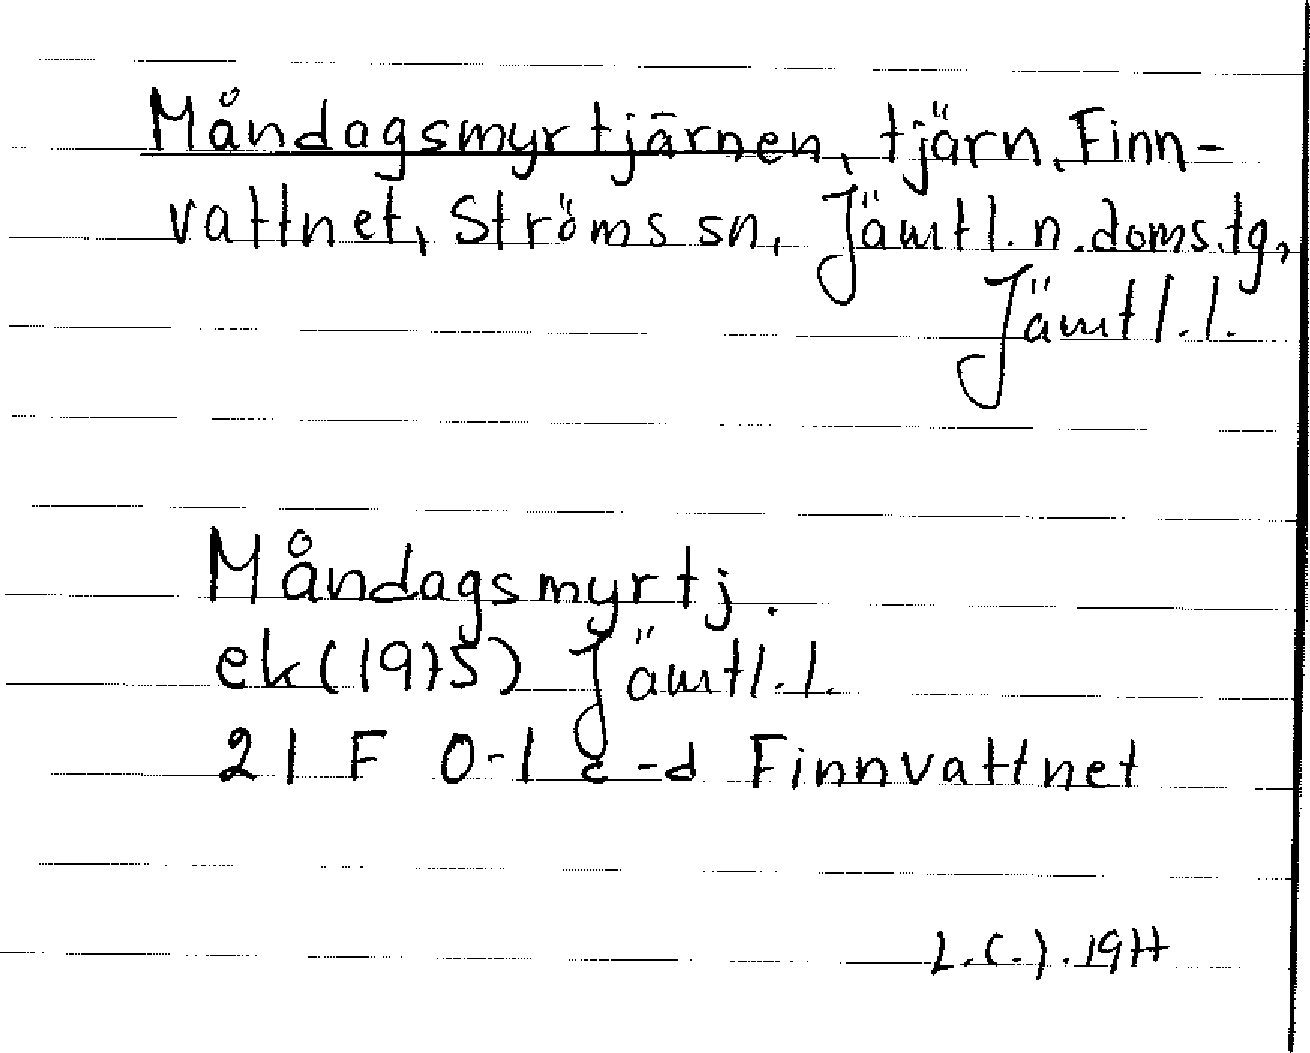 Måndagsmyrtjärnen, tjärn, Finn-
vattnet, Ströms sn, Jämtl. n. doms.tg,
Jämtl. l.
Måndagsmyrtj.
ek (1975) Jämtl. l.
21 F 0-1 c-d Finnvattnet
L.C.J. 1977